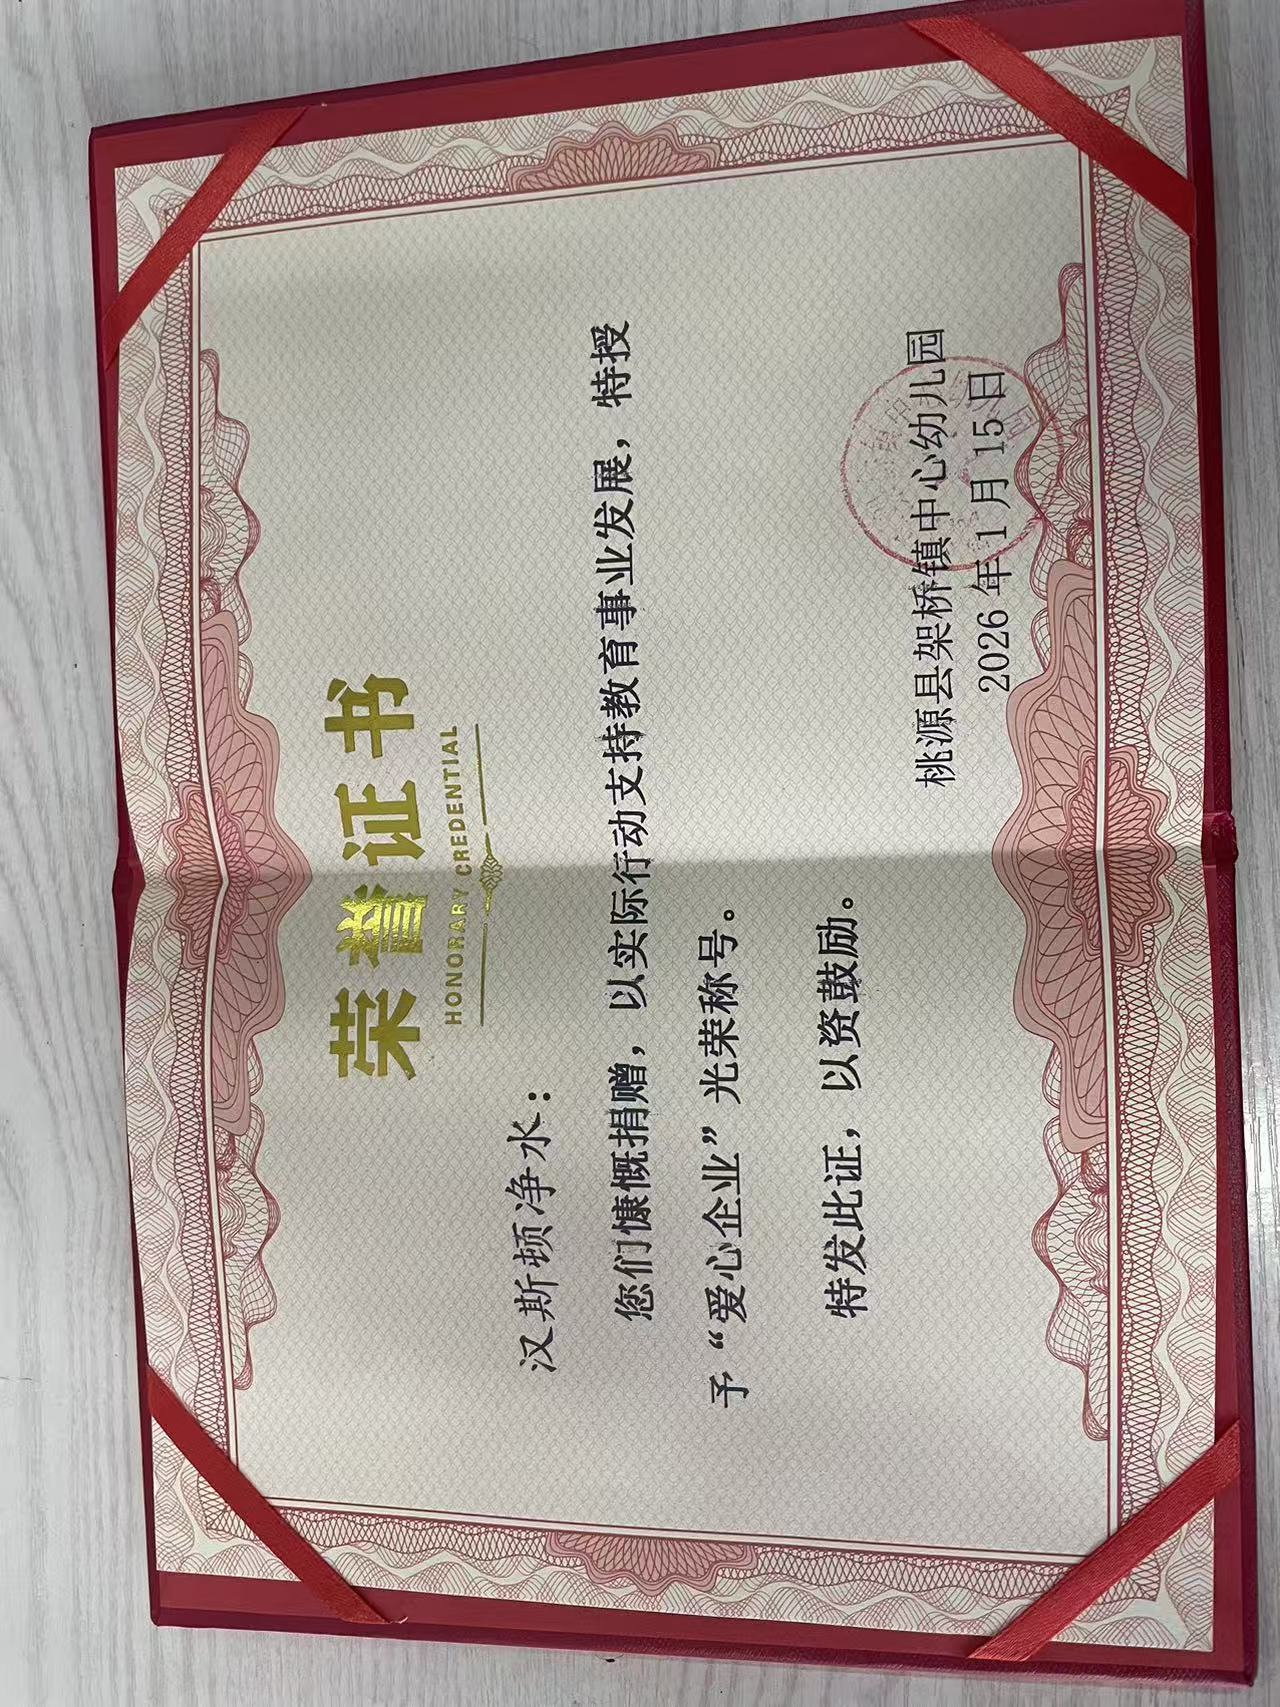 荣誉证书
HONORARY CREDENTIAL
汉斯顿净水：
您们慷慨捐赠，以实际行动支持教育事业发展，特授
予“爱心企业”光荣称号。
特发此证，以资鼓励。
桃源县架桥镇中心幼儿园
2026年1月15日